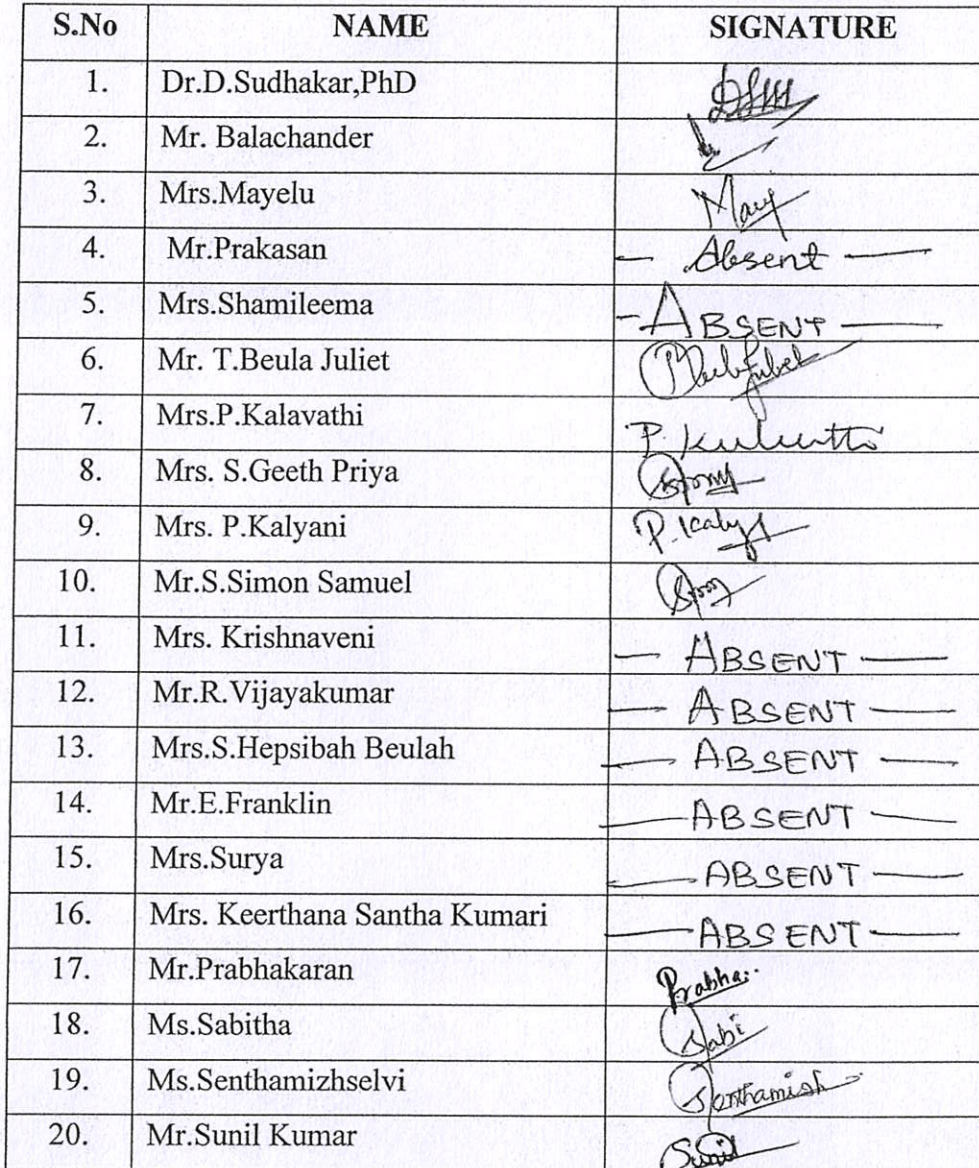 S.No NAME SIGNATURE
1. Dr.D.Sudhakar,PhD
2. Mr. Balachander
3. Mrs.Mayelu Mary
4. Mr.Prakasan Absent
5. Mrs.Shamileema ABSENT
6. Mr. T.Beula Juliet
7. Mrs.P.Kalavathi P.
8. Mrs. S.Geeth Priya
9. Mrs. P.Kalyani P.
10. Mr.S.Simon Samuel
11. Mrs. Krishnaveni ABSENT
12. Mr.R.Vijayakumar ABSENT
13. Mrs.S.Hepsibah Beulah ABSENT
14. Mr.E.Franklin ABSENT
15. Mrs.Surya ABSENT
16. Mrs. Keerthana Santha Kumari ABSENT
17. Mr.Prabhakaran Prabha.
18. Ms.Sabitha Sabi
19. Ms.Senthamizhselvi
20. Mr.Sunil Kumar Sunil